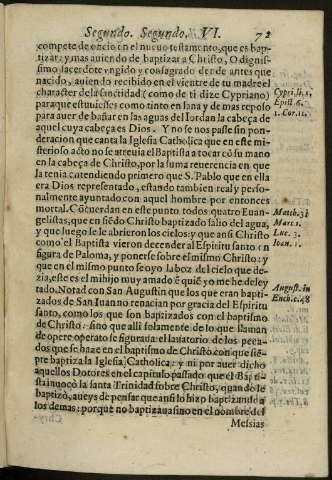 Segundo. Segundo. VI. 72
compete de oficio en el nueuo testamento, que es bap-
tizar: y mas auiendo de baptizar a Christo, O dignis-
simo sacerdote vngido y consagrado dende antes que
nacido, auiendo recibido en el vientre de tu madre el
character de la sanctidad (como de ti dize Cypriano)
para que estuuiesses como tinto en lana y de mas reposo
para auer de bañar en las aguas del Iordan la cabeça de
aquel cuya cabeça es Dios. Y no se nos passe sin pon-
deracion que canta la Iglesia Catholica que en este mi-
sterioso acto no se atreuia el Baptista a tocar cō su mano
en la cabeça de Christo, por la suma reuerencia en que
la tenia entendiendo primero que S. Pablo que en ella
era Dios representado, estando tambien real y perso-
nalmente ayuntado con aquel hombre por entonces
mortal. Cōcuerdan en este punto todos quatro Euan-
gelistas, que en siēdo Christo baptizado salio del agua,
y que luego se le abrieron los cielos: y que ansi Christo
como el Baptista vieron decender al Espiritu sancto en
figura de Paloma, y ponerse sobre el mismo Christo: y
que en el mismo punto se oyo la boz del cielo que de-
zia, este es el mi hijo muy amado ē quiē yo me he deley
tado. Notad con San Augustin que los que eran bapti-
zados de San Iuan no renacian por gracia del Espiritu
santo, como los que son baptizados con el baptismo
de Christo: sino que alli solamente de lo que llaman
de opere operato se figuraua el lauatorio de los peca-
dos que se haze en el baptismo de Christo con que siē-
pre baptiza la Iglesia Catholica: y ni por auer dicho
aquellos Dotores en el capitulo passado que el Bapti-
sta inuocò la santa Trinidad sobre Christo, quando le
baptizò, aueys de pensar que ansi lo hizo baptizando a
los demas: porque no baptizaua sino en el nombre del
Messias
Cypri. li. 2.
Epist. 6.
1. Cor. 11.
Matth. 3.
Marc. 1.
Luc. 3.
Ioan. 1.
August. in
Ench. c. 48